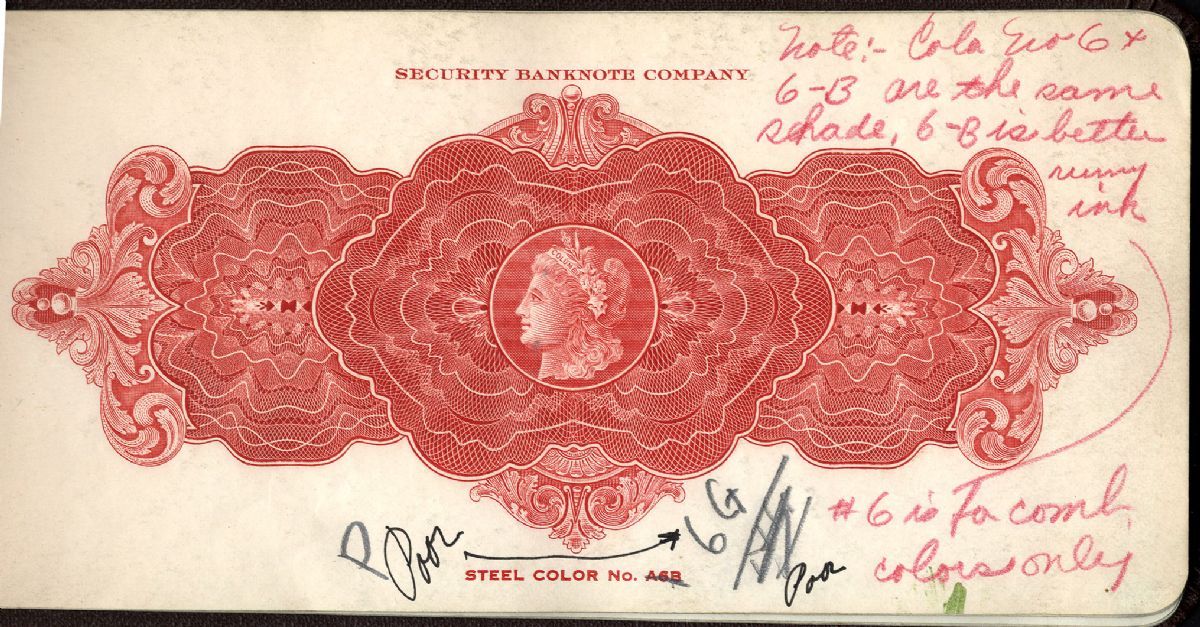 SECURITY BANKNOTE COMPANY
Note:- Cola No 6 +
6-B are the same
schade, 6-B is better
runny
ink
P Poor
6 G
Poor
STEEL COLOR No. A6B
#6 is For comb,
colors only